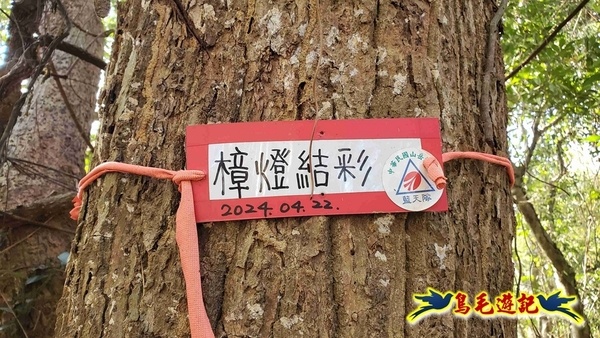 樟燈結彩
2024.04.22.
中華民國山岳
藍天隊
鳥毛遊記